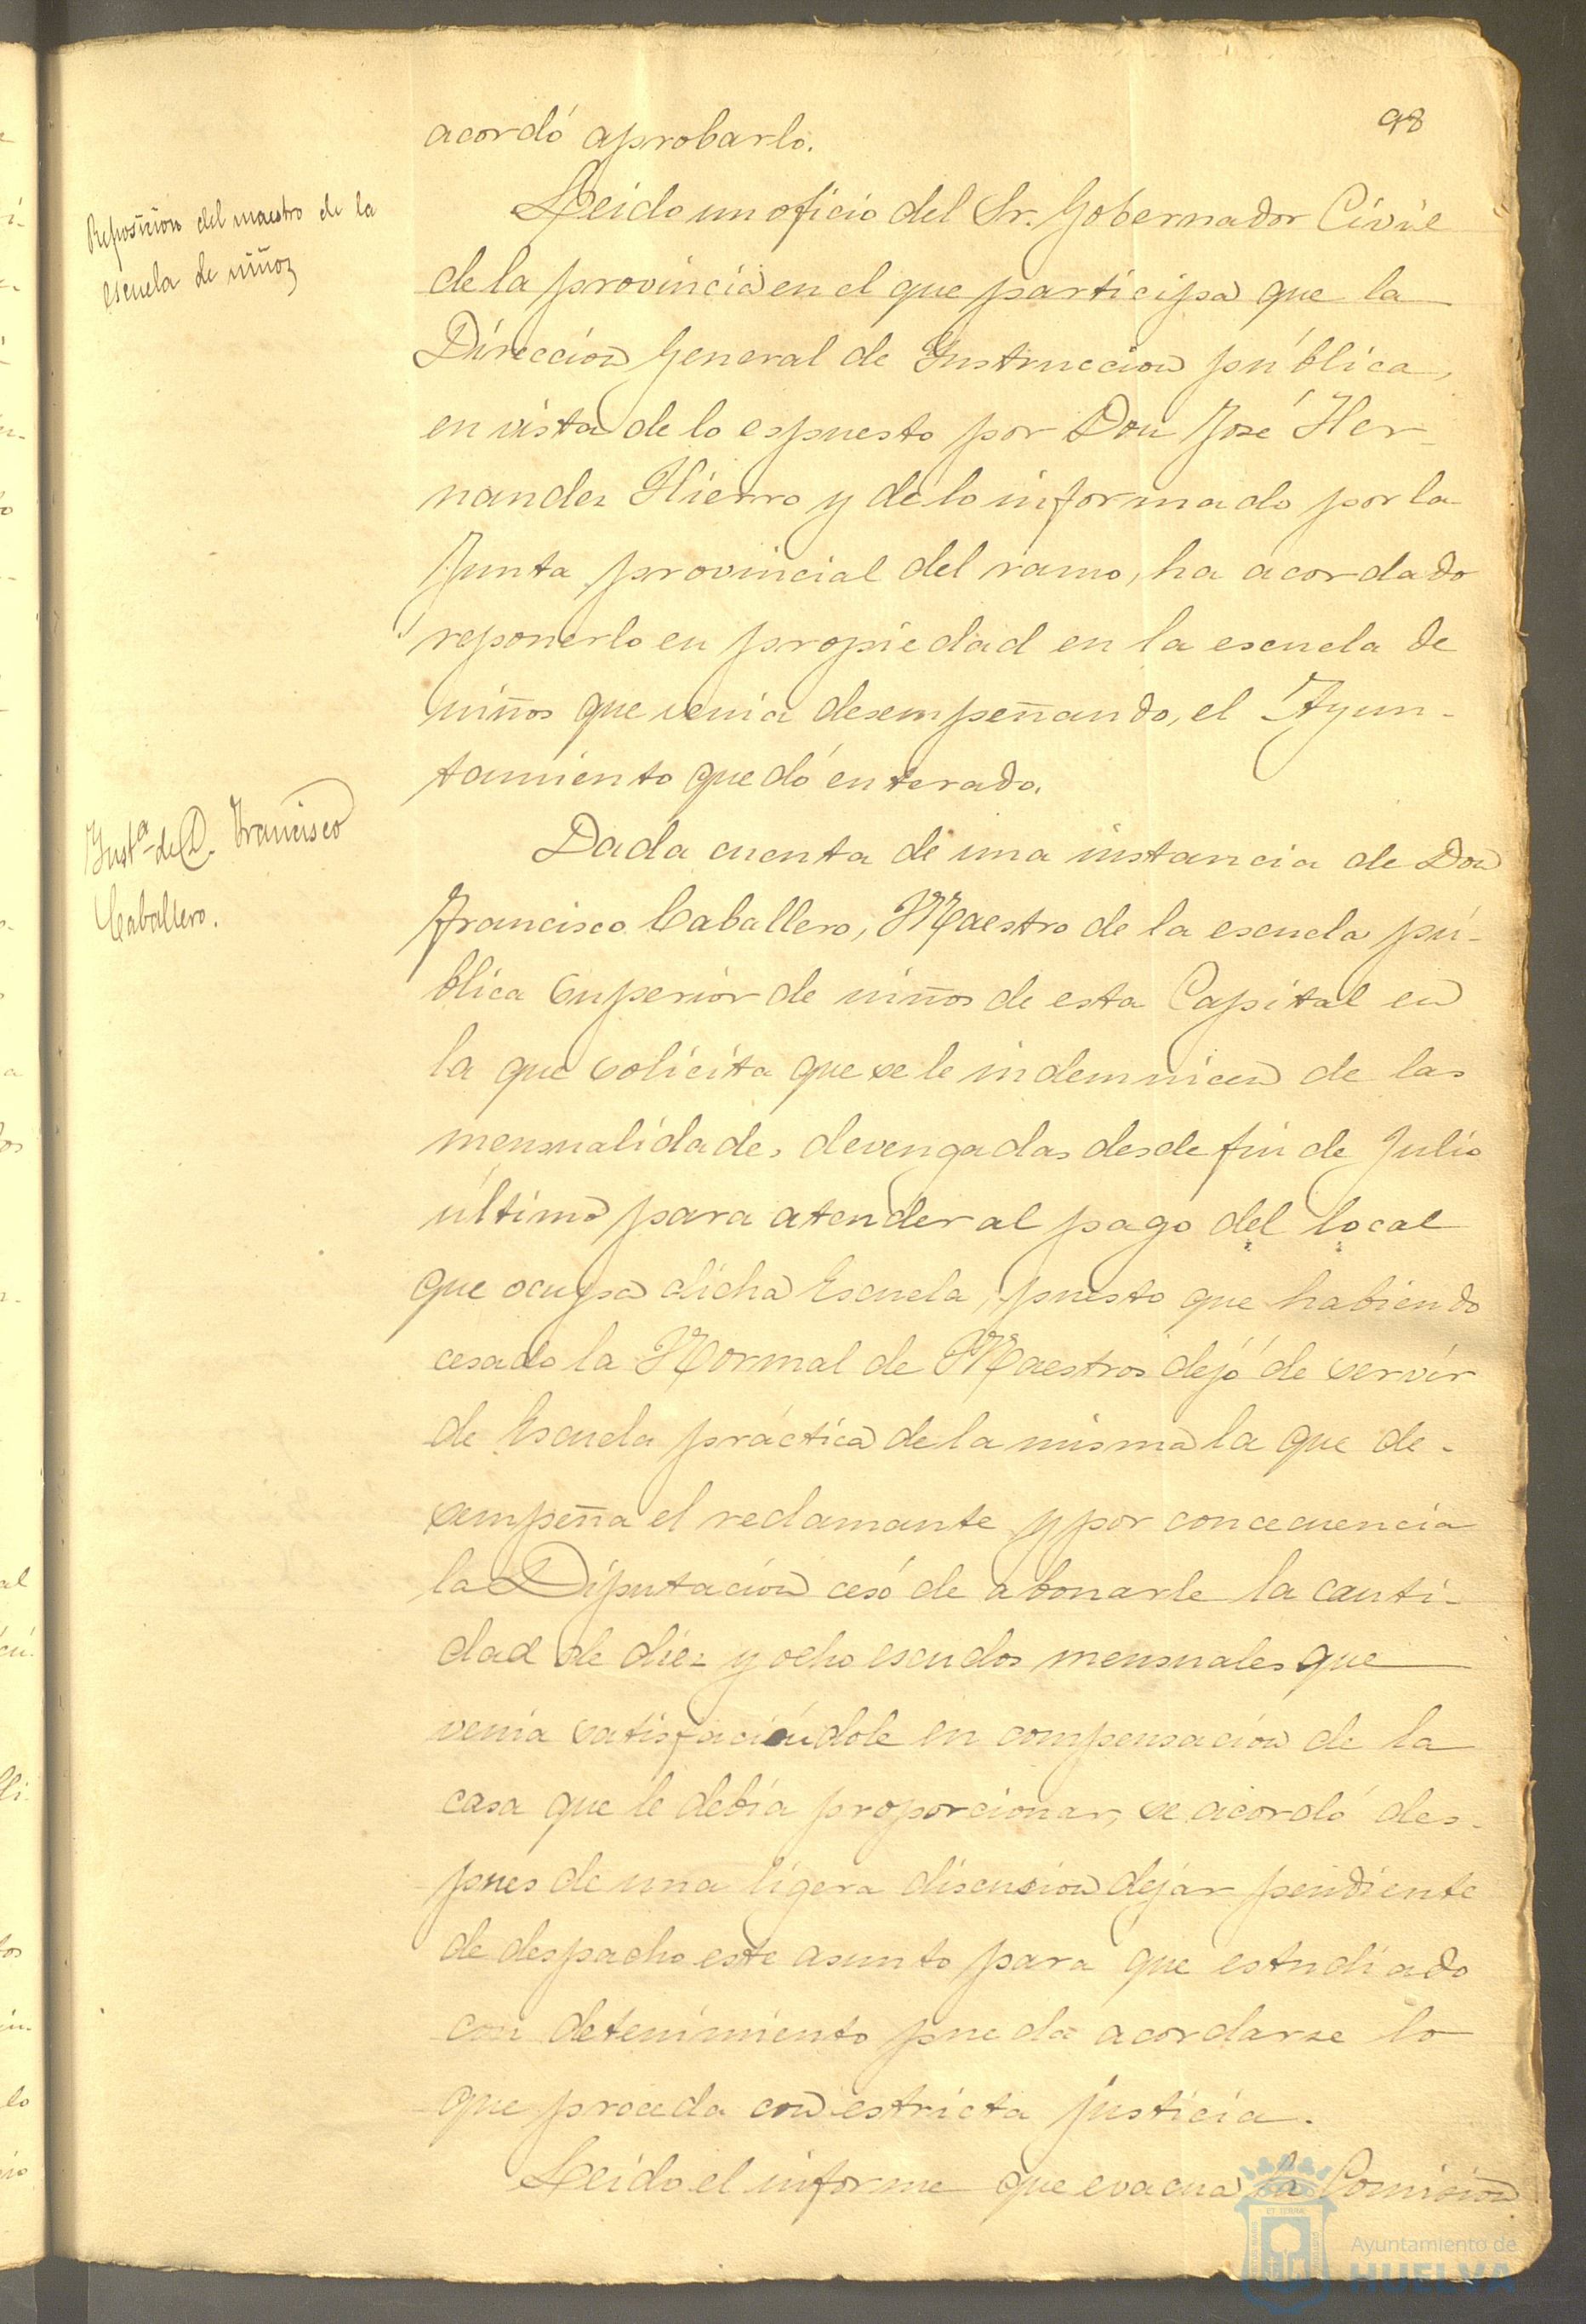 98
acordó aprobarlo.
Reposicion del maestro de la
escuela de niños
Leido un oficio del Sr. Gobernador Civil
de la provincia en el que participa que la
Direccion General de Instruccion pública,
en vista de lo espuesto por Don José Her-
nandez Hierro y de lo informado por la
Junta provincial del ramo, ha acordado
reponerlo en propiedad en la escuela de
niños que venia desempeñando, el Ayun-
tamiento quedó enterado.
Inst.ª de D. Francisco
Caballero.
Dada cuenta de una instancia de Don
Francisco Caballero, Maestro de la escuela pú-
blica Superior de niños de esta Capital en
la que solicita que se le indemnicen de las
mensualidades devengadas desde fin de Julio
último para atender al pago del local
que ocupa dicha Escuela, puesto que habiendo
cesado la Normal de Maestros dejó de servir
de Escuela práctica de la misma la que de-
sempeña el reclamante y por concecuencia
la Diputacion cesó de abonarle la canti-
dad de diez y ocho escudos mensuales que
venía satisfaciéndole en compensacion de la
casa que le debía proporcionar, se acordó des-
pues de una ligera discusion dejar pendiente
de despacho este asunto para que estudiado
con detenimiento pueda acordarse lo
que proceda con estricta justicia.
Leido el informe que evacua la Comision
Ayuntamiento de
HUELVA